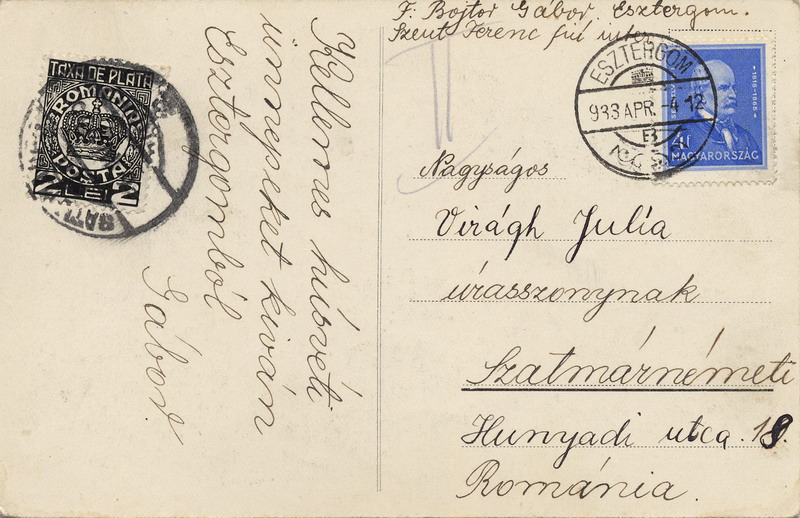 F: Bojtor Gábor Esztergom.
Szent Ferenc fiú inter
TAXA DE PLATA
ROMANIA
POSTA
2 LEI 2
ESZTERGOM
933 APR. -4 12
B
1816-1868
MAGYARORSZÁG
Kellemes húsvéti
ünnepeket kiván
Esztergomból
Gábor
Nagyságos
Virágh Julia
úrasszonynak
Szatmárnémeti
Hunyadi utca. 18.
Románia.